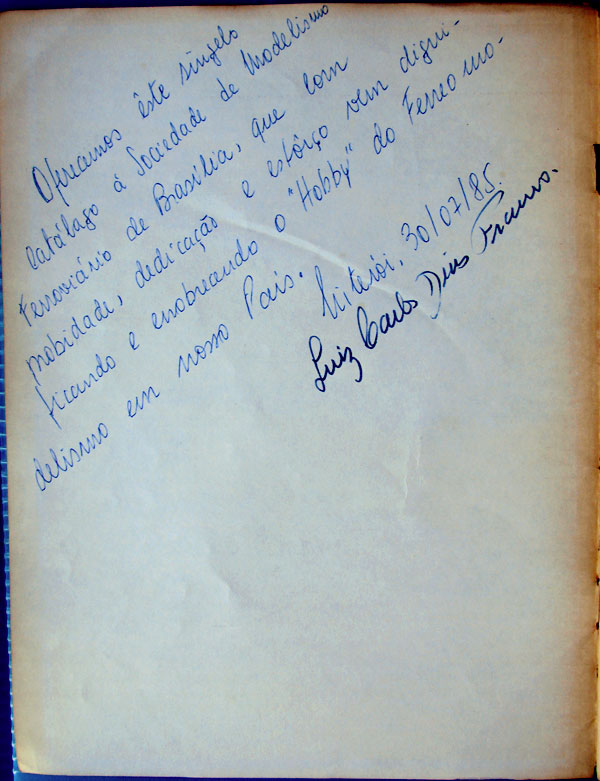 Oferecemos êste singelo
catálago à Sociedade de Modelismo
Ferroviário de Brasília, que com
probidade, dedicação e estôrço vem digni-
ficando e enobrecendo o "Hobby" do Ferreomo-
delismo em nosso País.
Niterói, 30/07/85.
Luiz Carlos Dias Franco.